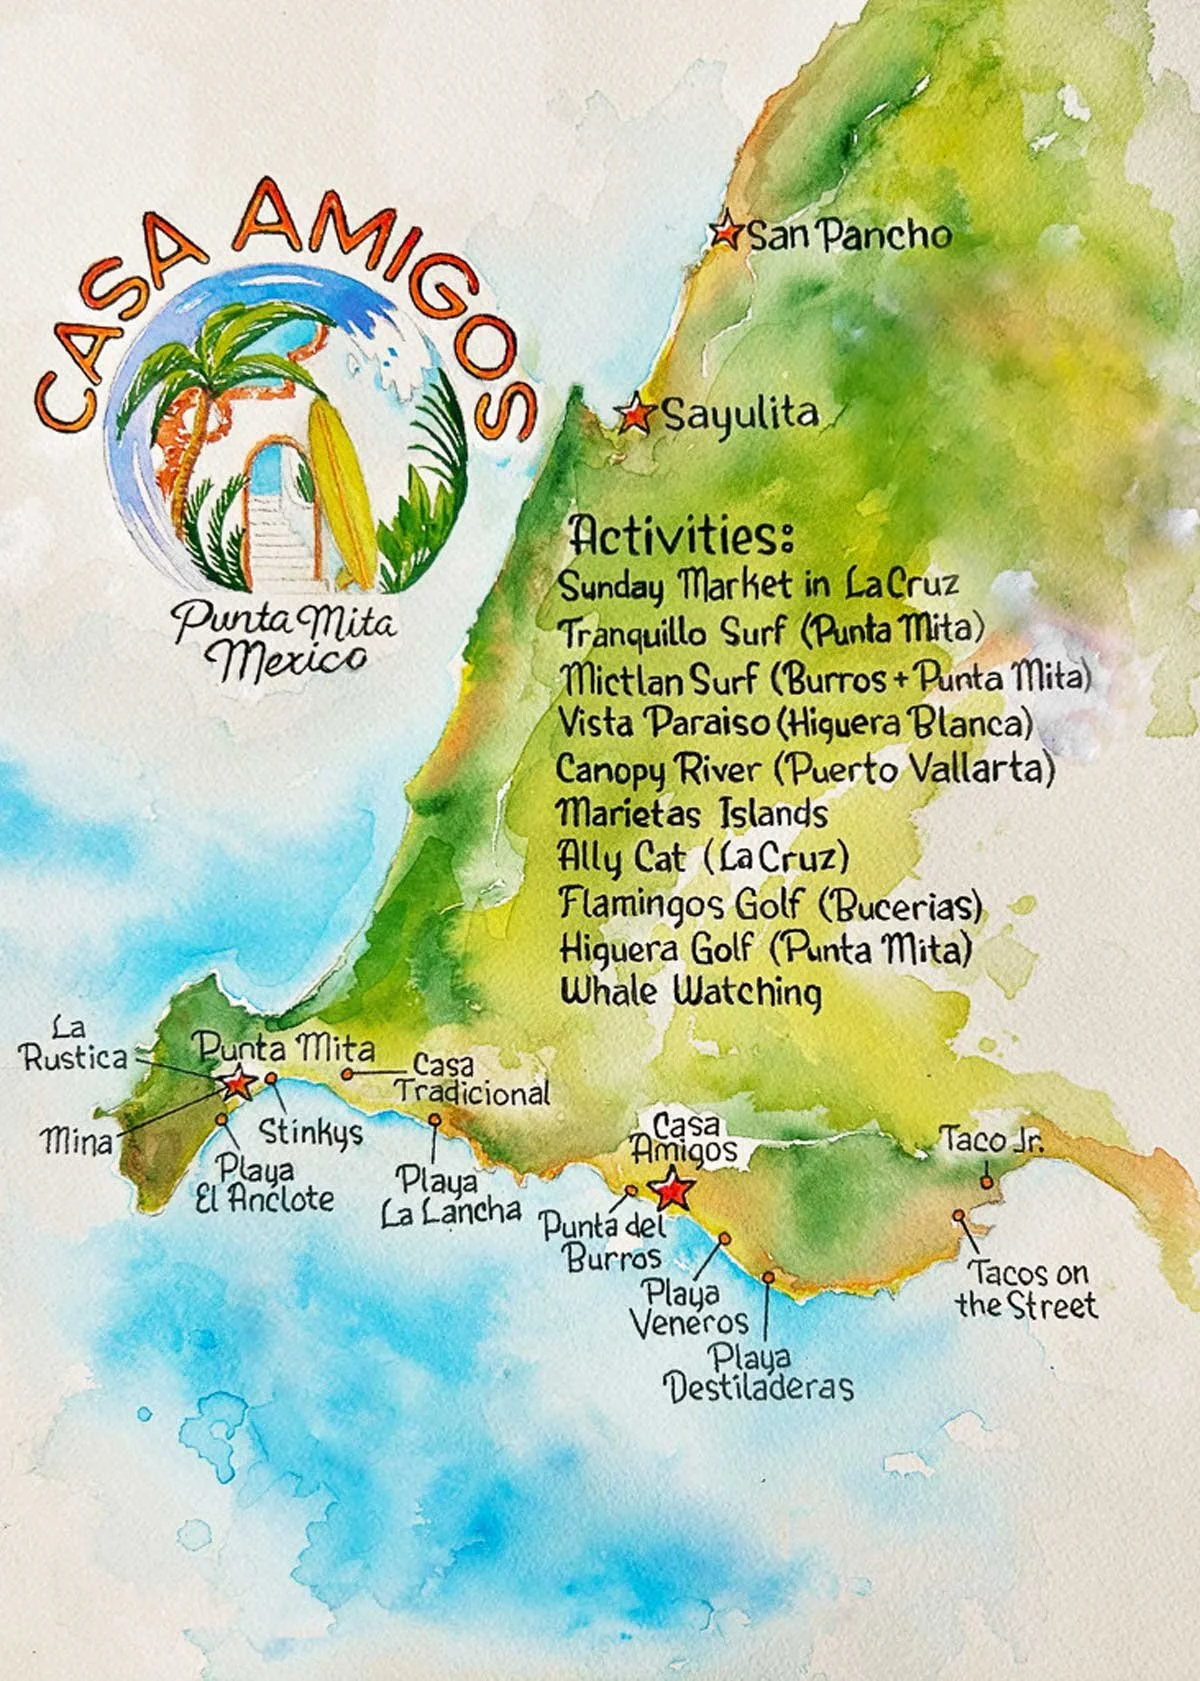 CASA AMIGOS
Punta Mita
Mexico
San Pancho
Sayulita
Activities:
Sunday Market in La Cruz
Tranquillo Surf (Punta Mita)
Mictlan Surf (Burros + Punta Mita)
Vista Paraiso (Higuera Blanca)
Canopy River (Puerto Vallarta)
Marietas Islands
Ally Cat (La Cruz)
Flamingos Golf (Bucerias)
Higuera Golf (Punta Mita)
Whale Watching
La
Rustica
Punta Mita
Casa
Tradicional
Mina
Stinkys
Playa
El Anclote
Playa
La Lancha
Casa
Amigos
Taco Jr.
Punta del
Burros
Playa
Veneros
Playa
Destiladeras
Tacos on
the Street